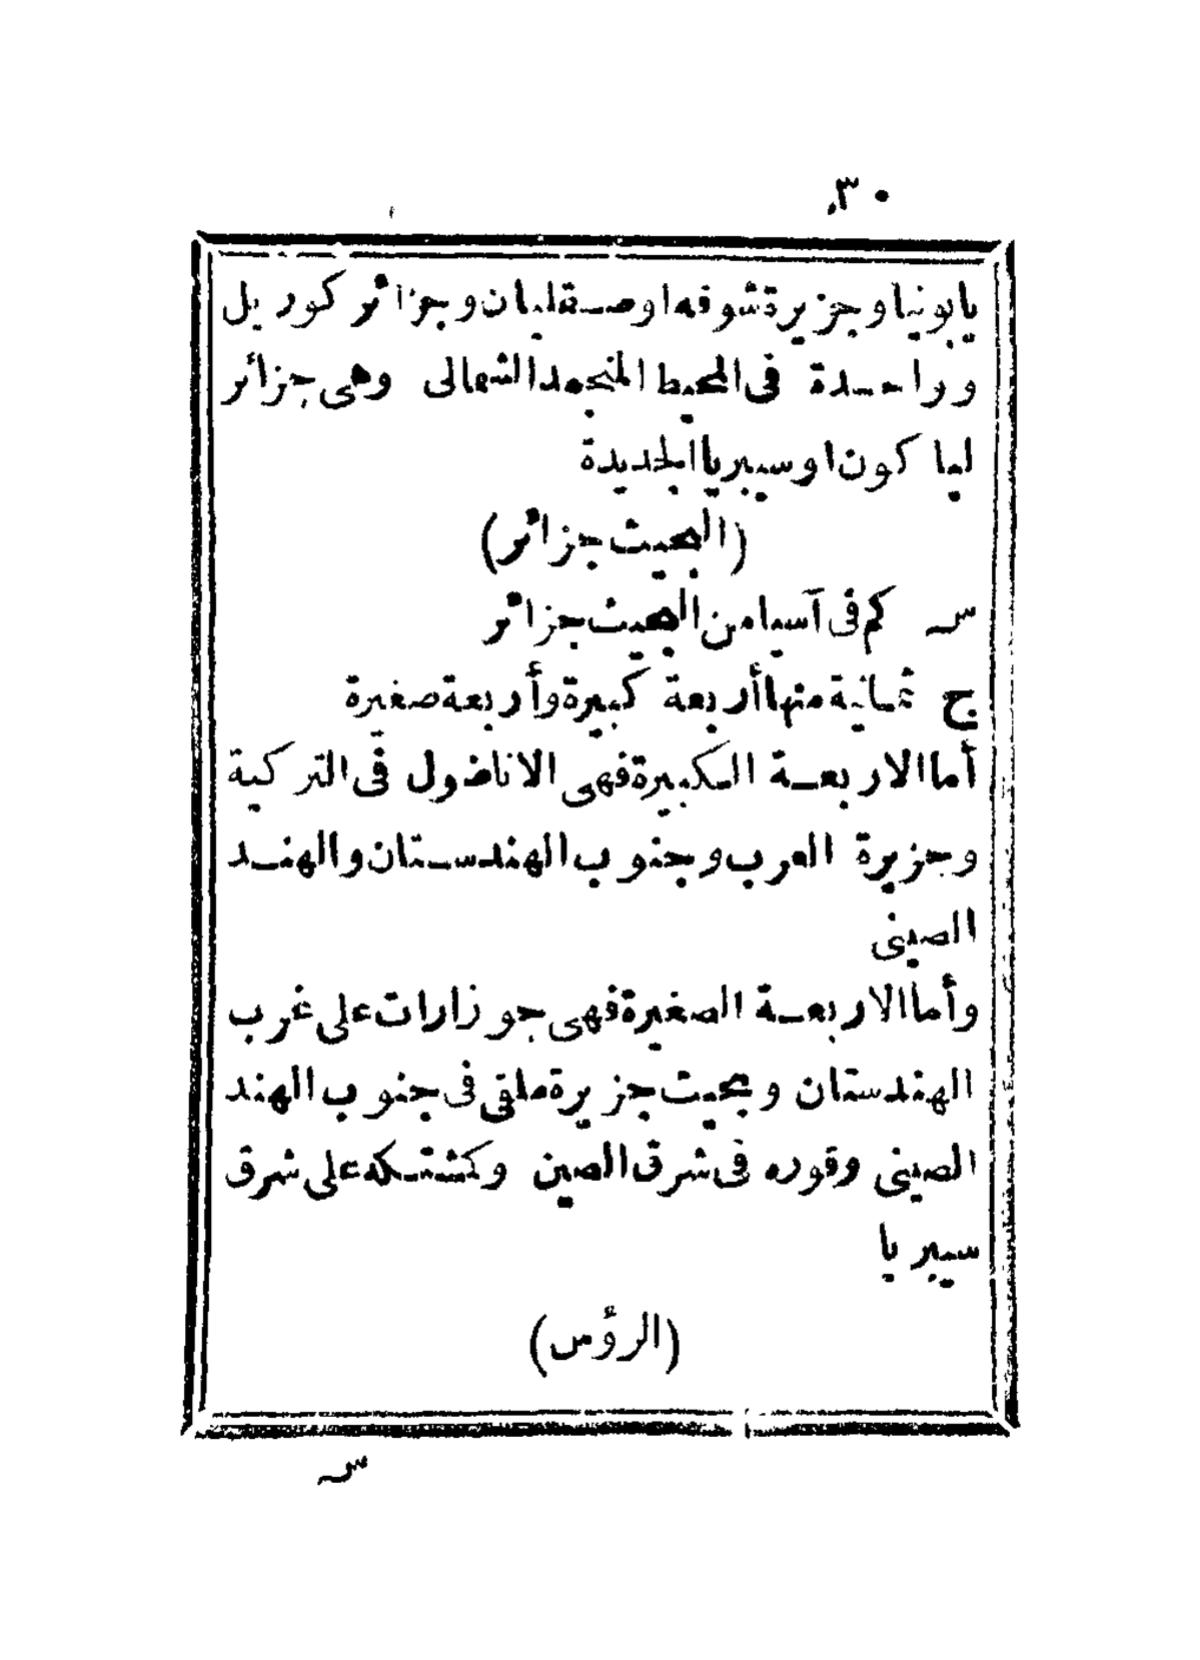 ٣٠
يابونيا وجزيرة شوفه اوصقليان وجزائر كوريل
وراحدة فى المحيط المنجمد الشمالى وهى جزائر
لياكون اوسيبريا الجديدة
(البحيث جزائر)
س كم فى آسيا من البحيث جزائر
ج ثمانية منها أربعة كبيرة وأربعة صغيرة
أما الاربعة الكبيرة فهى الاناضول فى التركية
وجزيرة العرب وجنوب الهندستان والهند
الصينى
وأما الاربعة الصغيرة فهى جوزارات على غرب
الهندستان وبحيث جزيرة ملقى فى جنوب الهند
الصينى وقوره فى شرق الصين وكشتكه على شرق
سيبريا
(الرؤس)
س